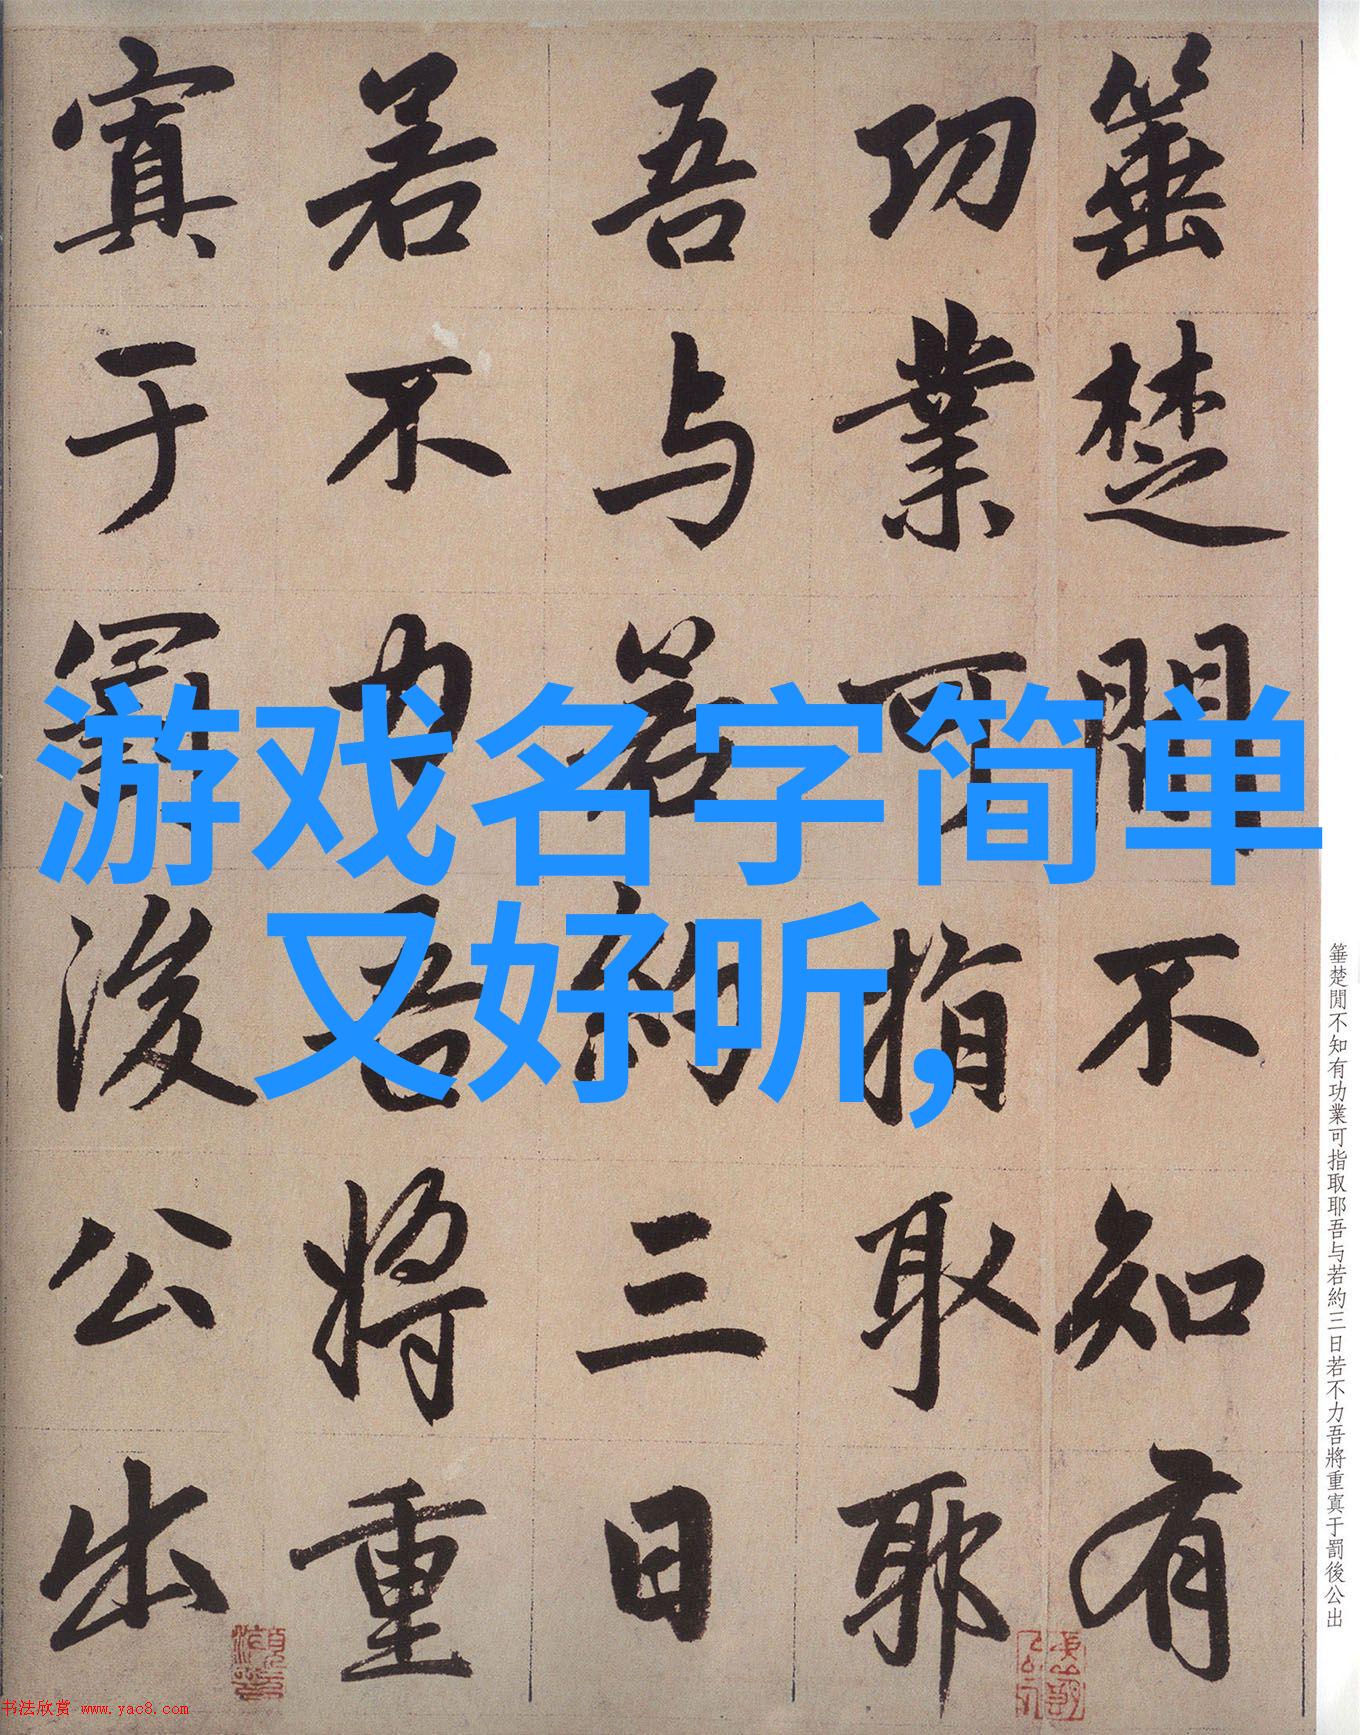 箠楚閒不知有
功業可指取耶
吾与若約三日
若不力吾將重
寘于罰後公出
游戏名字简单
又好听,
箠楚閒不知有功業可指取耶吾与若約三日若不力吾將重寘于罰後公出
书法欣赏 www.yac8.com